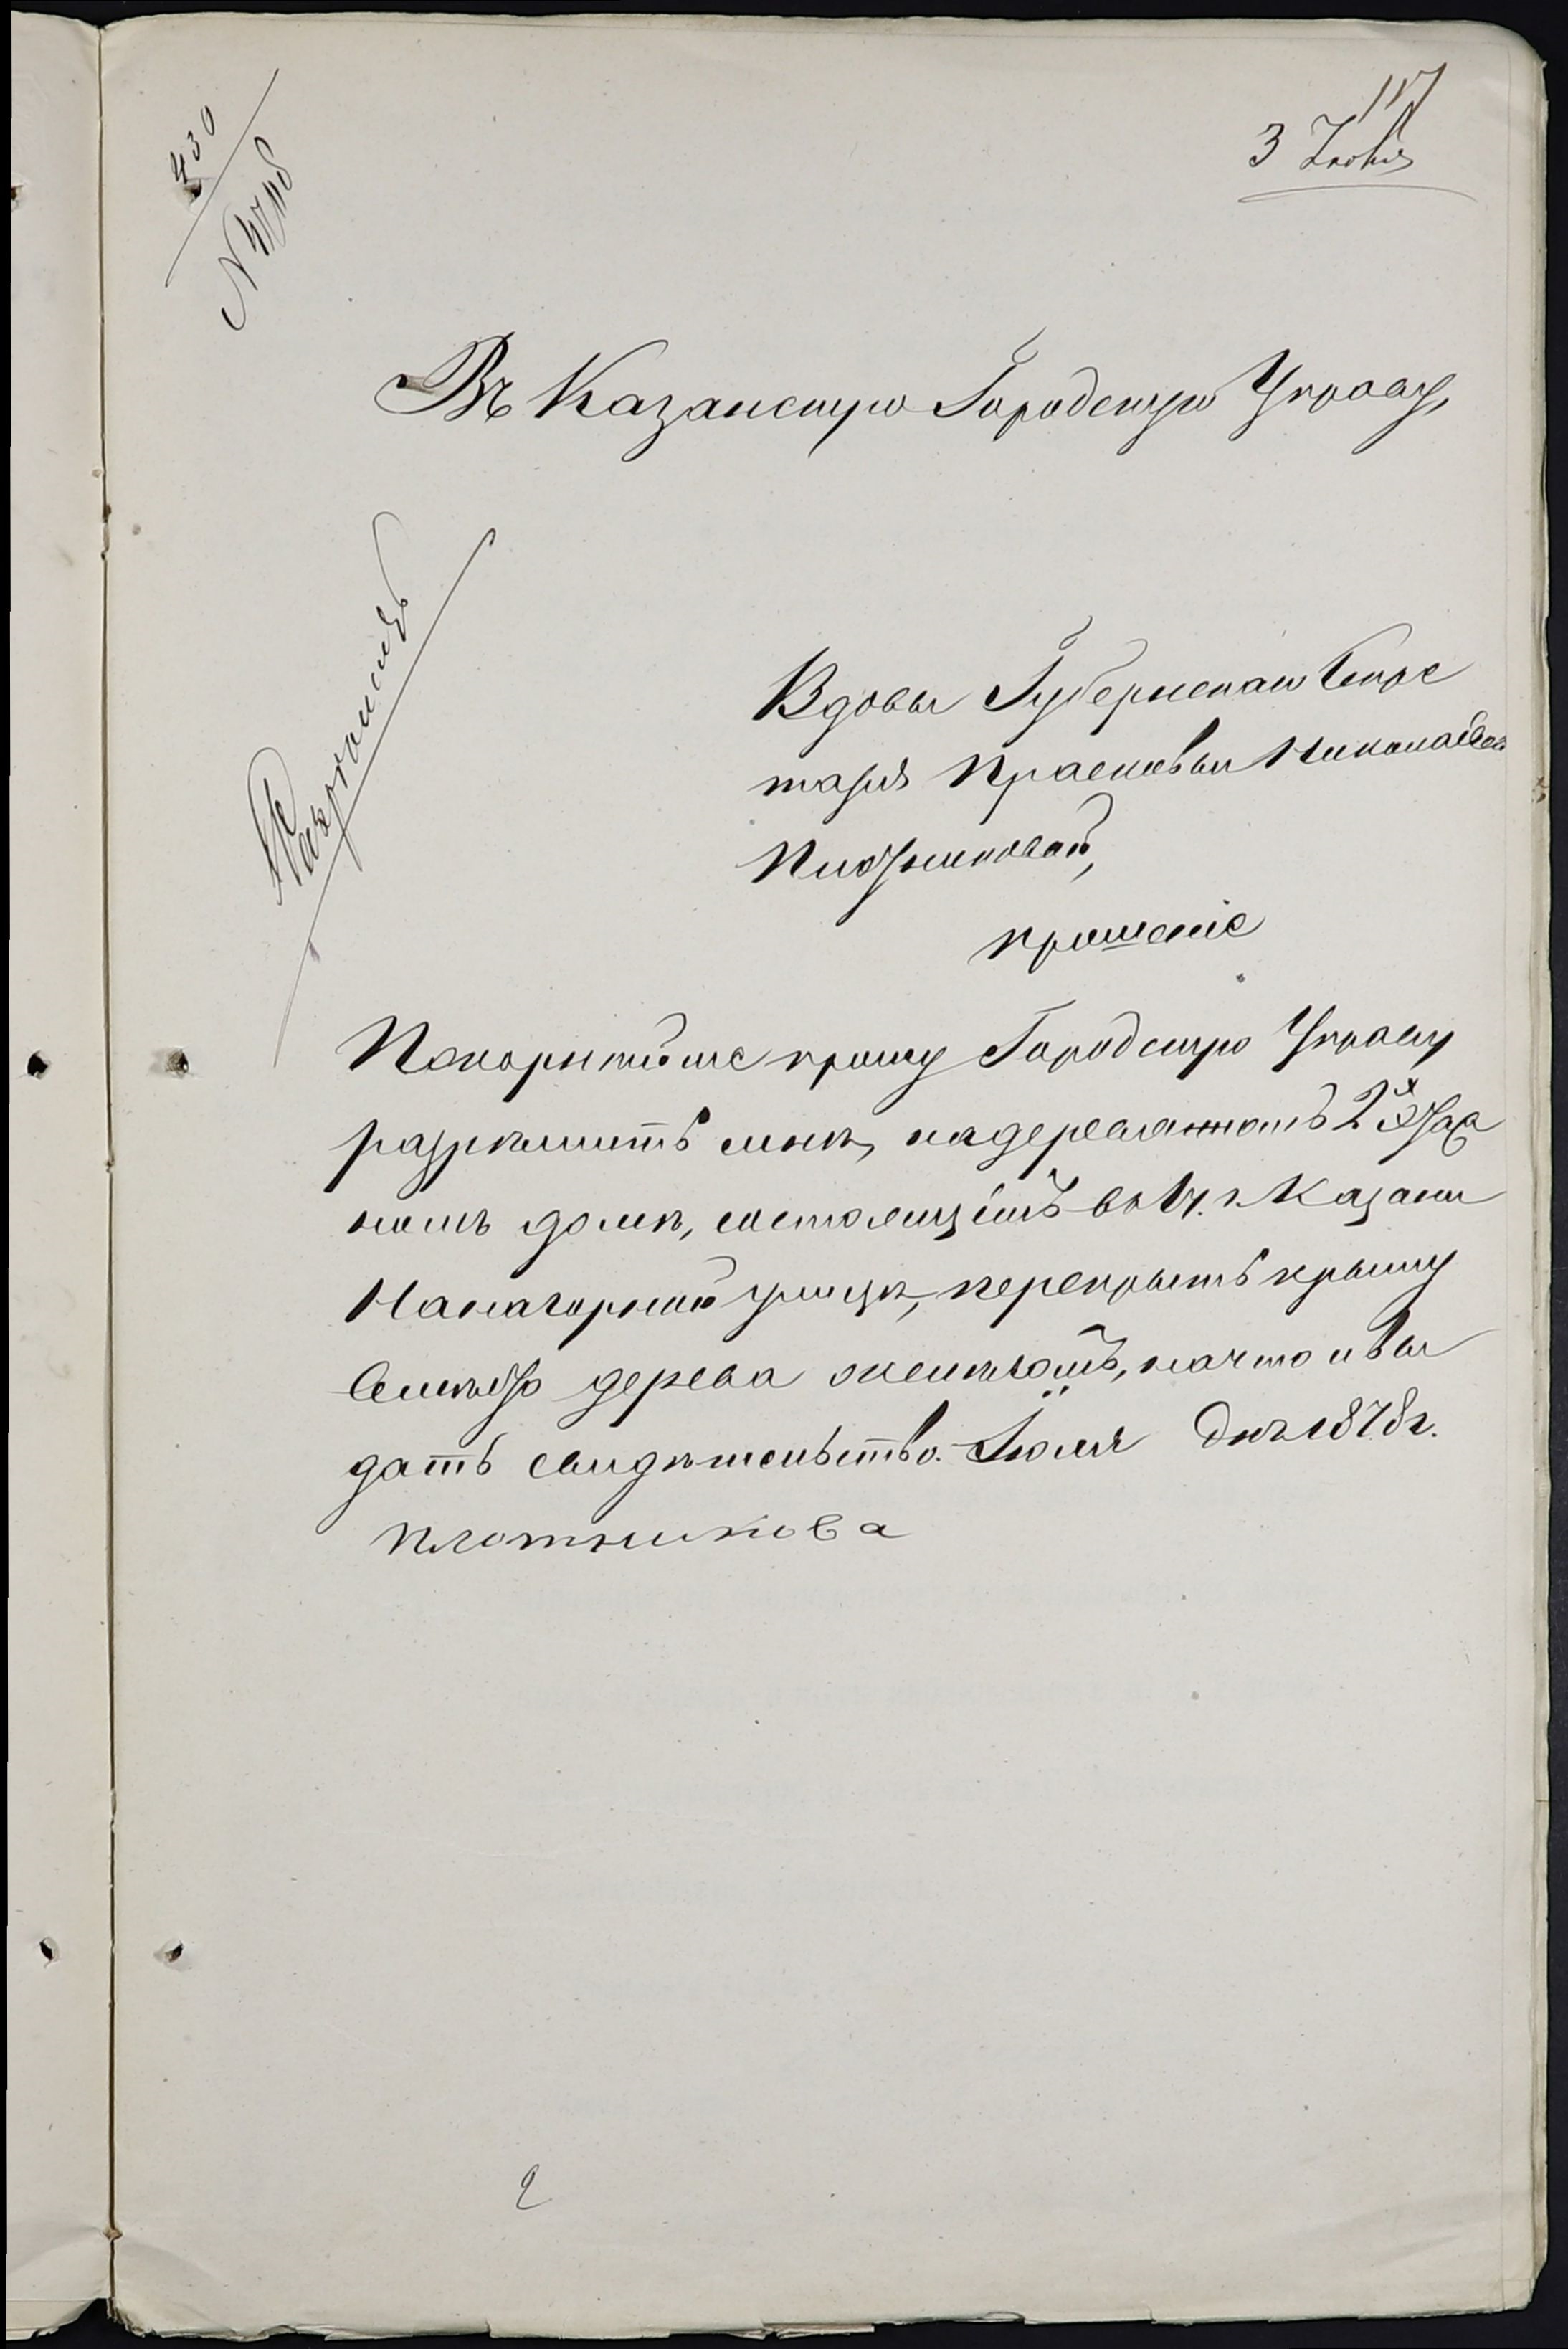 117
3 Июля
430
Въ Казанскую Городскую Управу,
Вдовы Губернскаго Секре
таря Прасковьи Николаевой
Плотниковой,
прошеніе
Покорнѣйше прошу Городскую Управу
разрѣшить мнѣ, на деревянномъ 2х этаж
номъ домѣ, состоящемъ въ 1ч. г. Казани
На нагорной улицѣ, перекрыть крышу
вмѣсто дерева желѣзомъ, на что и вы
дать свидѣтельство. Іюля дня 1878 г.
Плотникова
2